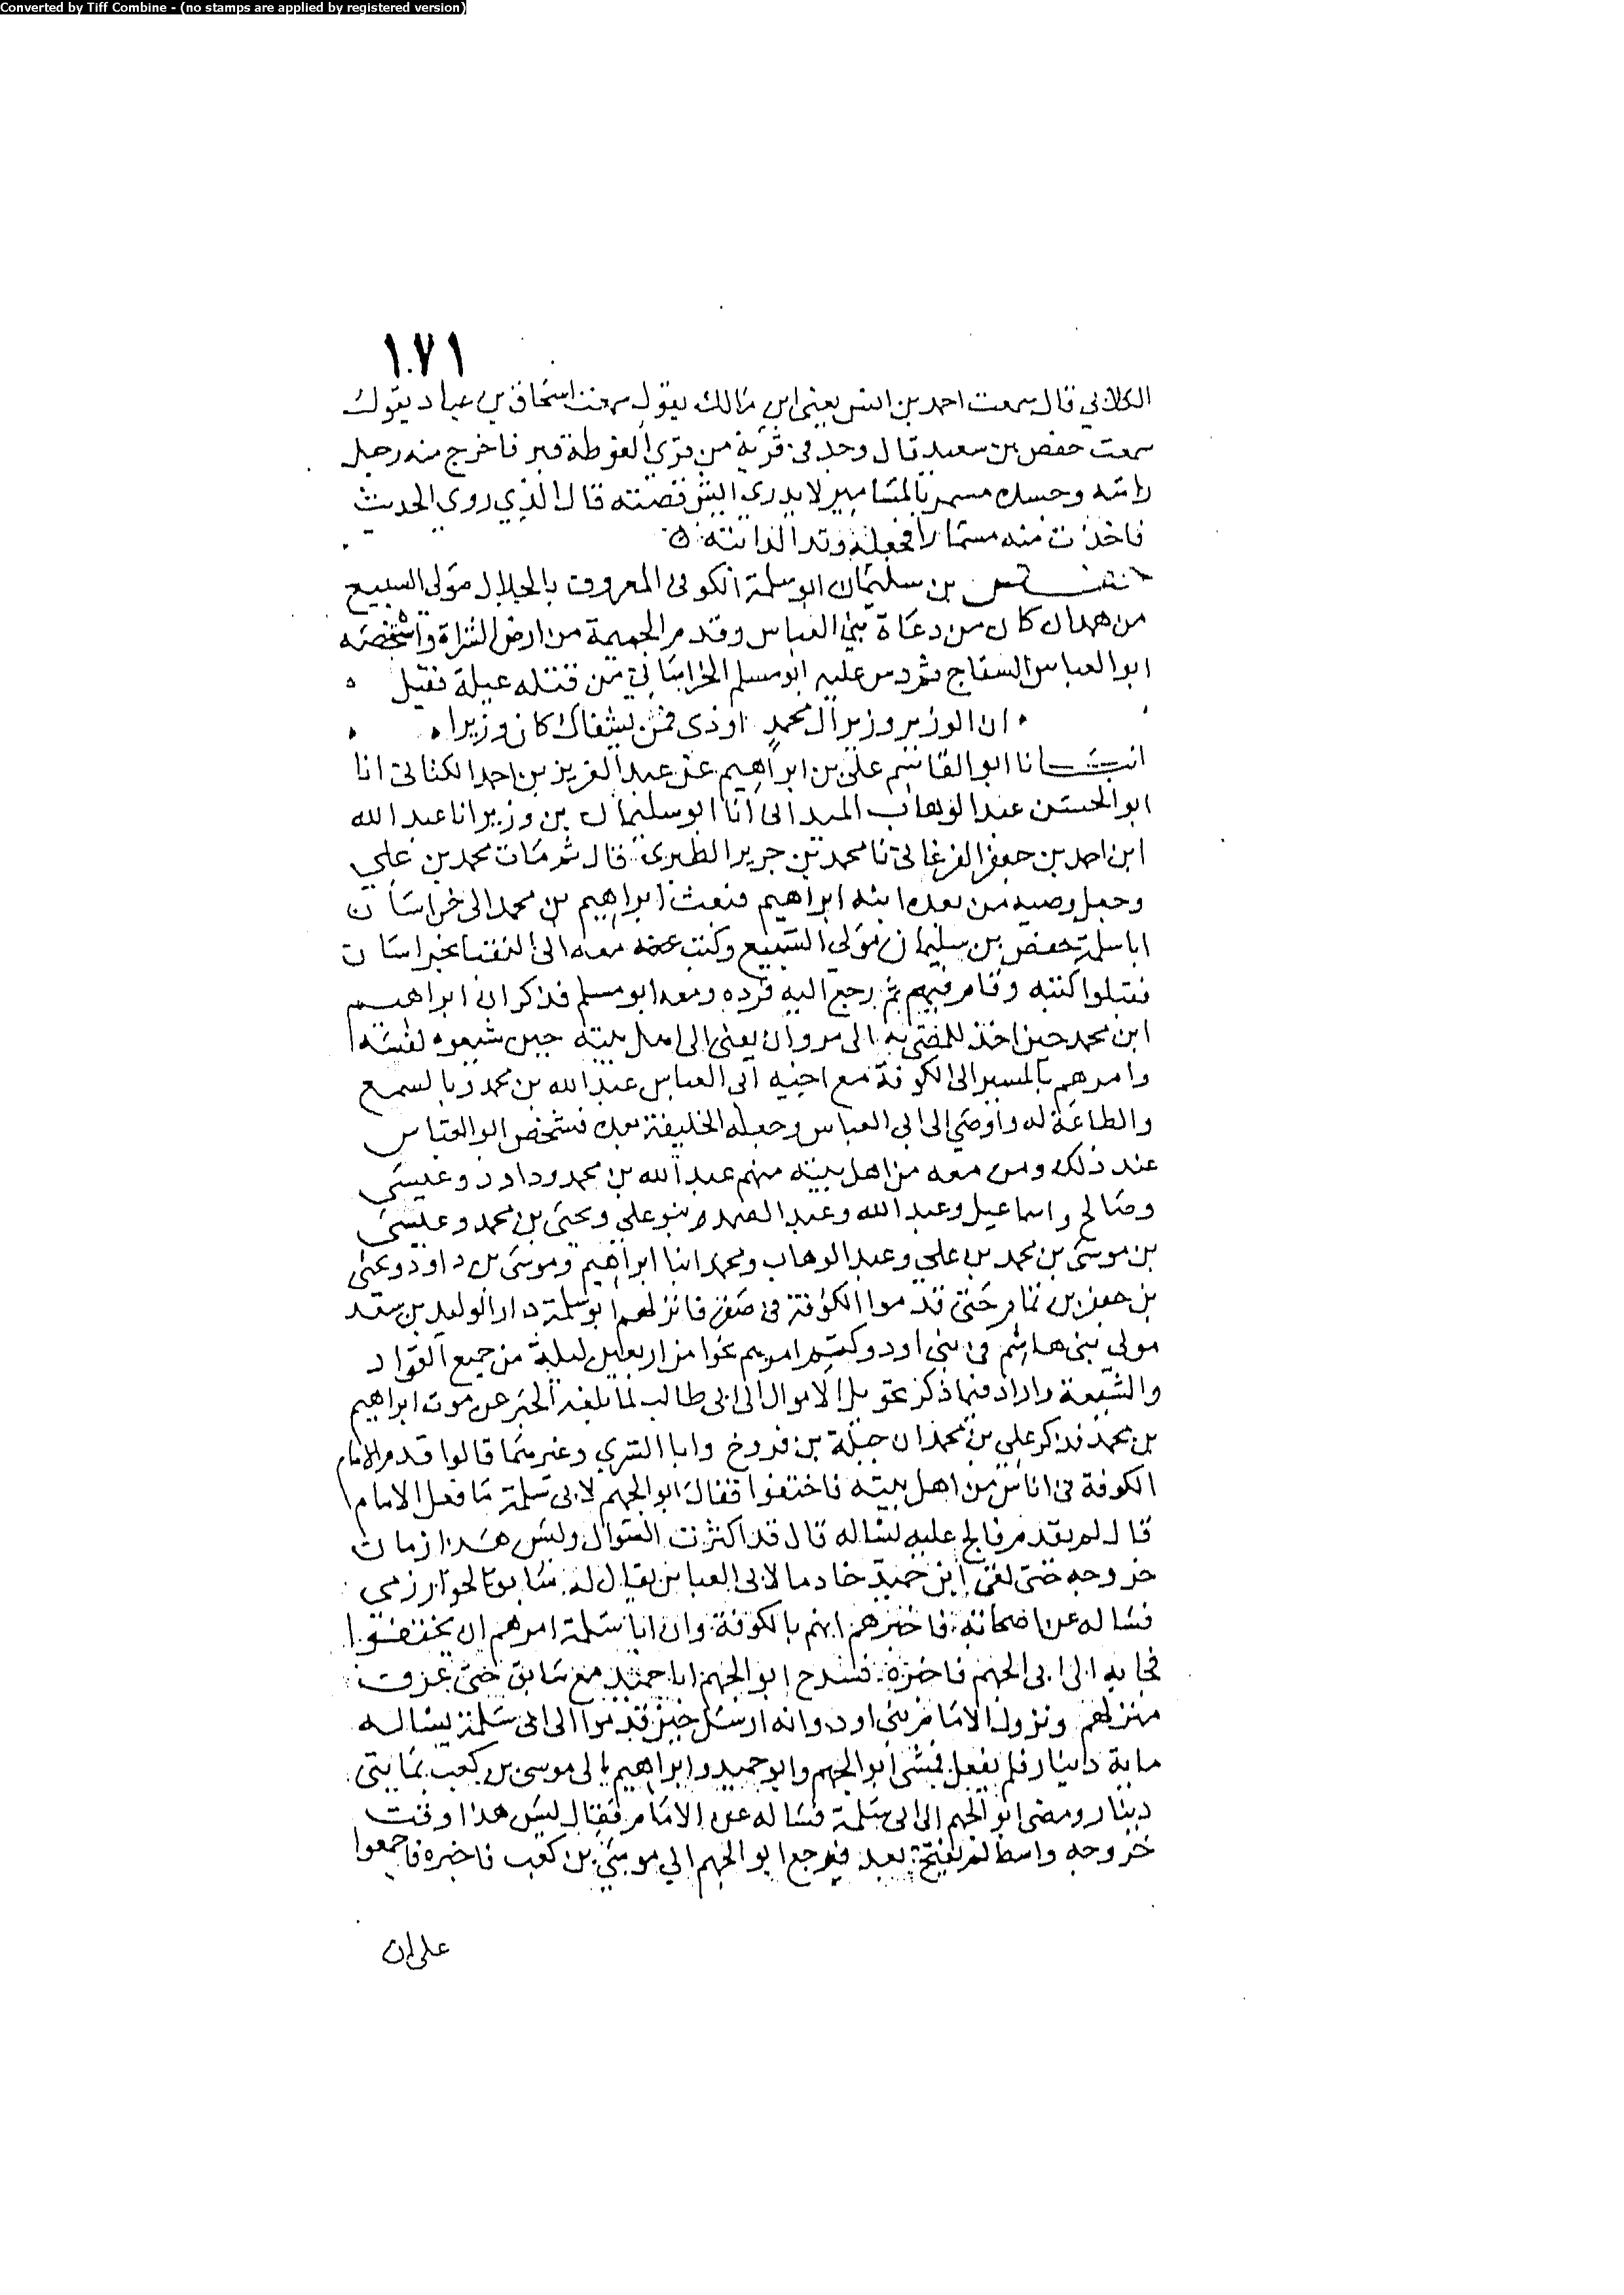 Converted by Tiff Combine - (no stamps are applied by registered version)
١٠٧١
الكلابي قال سمعت احمد بن انس يعني ابن مالك يقول سمعت اسحاق بن عباد يقول
سمعت حفص بن سعيد قال وجد في قرية من قرى الغوطة قبر فاخرج منه رجل
راسه وجسده مسمر بالمسامير لا يدري ايش قصته قال الذي روى الحديث
فاخذت منه مسمارا فجعله وتد الدابته
حفص بن سليمان ابو سلمة الكوفي المعروف بالخلال مولى السبيع
من همدان كان من دعاة بني العباس وقدم الحميمة من ارض الشراة واستخلصه
ابو العباس السفاح ثم دس عليه ابو مسلم الخراساني من قتله غيلة فقيل
ان الوزير وزير آل محمد اودى فمن يشناك كان وزيرا
انبانا ابو القاسم علي بن ابراهيم عن عبد العزيز بن احمد الكتاني انا
ابو الحسن عبد الوهاب الميداني انا ابو سليمان بن وزير انا عبد الله
ابن احمد بن جعفر الفرغاني نا محمد بن جرير الطبري قال ثم مات محمد بن علي
وجعل وصيه من بعده ابنه ابراهيم فبعث ابراهيم بن محمد الى خراسان
ابا سلمة حفص بن سليمان مولى السبيع وكتب معه الى النقبا بخراسان
فقبلوا كتبه وقام فيهم ثم رجع اليه فرده ومعه ابو مسلم فذكر ان ابراهيم
ابن محمد حين اخذ للمضي به الى مروان يعنى الى اهل بيته حين شيعوه نفسه
وامرهم بالمسير الى الكوفة مع اخيه ابى العباس عبد الله بن محمد وبالسمع
والطاعة له واوصى الى ابي العباس وجعله الخليفة بعده فشخص ابو العباس
عند ذلك ومن معه من اهل بيته منهم عبد الله بن محمد وداود وعيسى
وصالح واسماعيل وعبد الله وعبد الصمد بنو علي ويحيى بن محمد وعيسى
بن موسى بن محمد بن علي وعبد الوهاب ومحمد ابنا ابراهيم وموسى بن داود ويحيى
بن جعفر بن تمام حتى قدموا الكوفة في صفر فانزلهم ابو سلمة دار الوليد بن سعد
مولى بني هاشم في بني اود وكتم امرهم نحوا من اربعين ليلة من جميع القواد
والشيعة واراد فيما ذكر تحويل الاموال الى ابي طالب لما بلغه الخبر عن موت ابراهيم
بن محمد فذكر علي بن محمد ان جبلة بن فروخ وابا السري وغيرهما قالوا قدم الامام
الكوفة في اناس من اهل بيته فاختفوا فقال ابو الجهم لابي سلمة ما فعل الامام
قال لم يقدم فالح عليه يساله قال قد اكثرت السوال وليس هذا زمان
خروجه حتى لقى ابو حميد خادما لابي العباس يقال له سابق الخوارزمي
فساله عن اصحابه فاخبرهم انهم بالكوفة وان ابا سلمة امرهم ان يختفوا
فجا به الى ابي الجهم فاخبره فسرح ابو الجهم ابا حميد مع سابق حتى عرف
منزلهم ونزول الامام في بني اود وانه ارسل حين قدموا الى ابى سلمة يساله
ماية دينار فلم يفعل فمشى ابو الجهم وابو حميد وابراهيم الى موسى بن كعب بمايتى
دينار ومضى ابو الجهم الى ابي سلمة فساله عن الامام فقال ليس هذا وقت
خروجه واسط لم تفتح بعد فرجع ابو الجهم الي موسى بن كعب فاخبره فاجمعوا
على ان